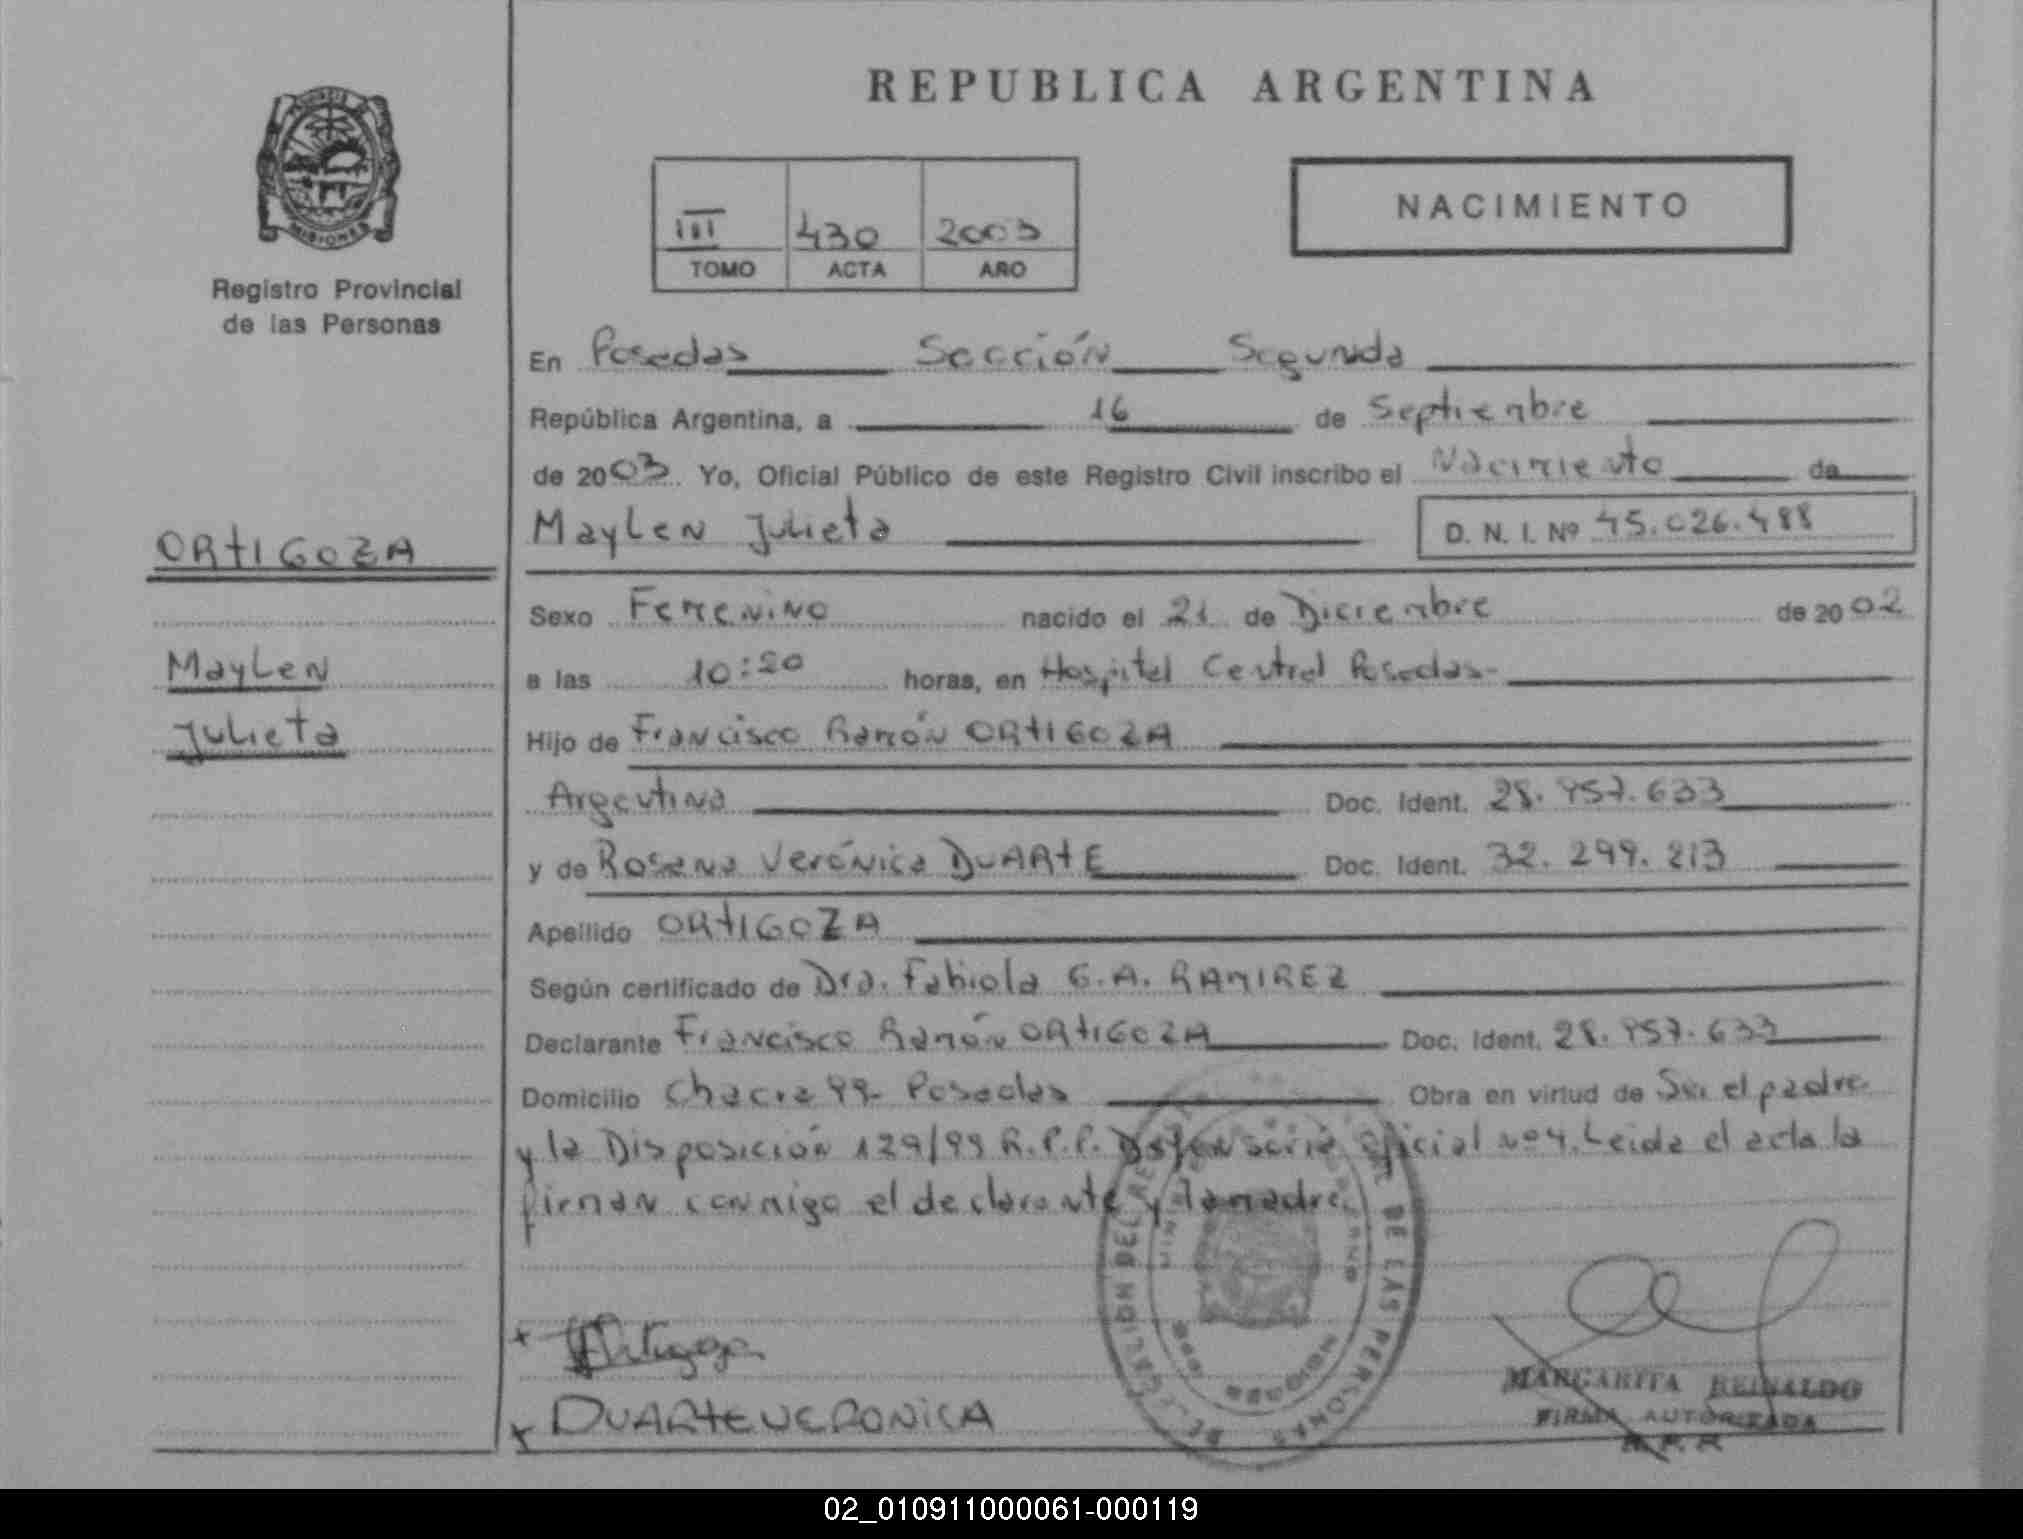 REPUBLICA ARGENTINA
NACIMIENTO
III 430 2003
TOMO ACTA AÑO
MISIONES
Registro Provincial
de las Personas
En Posadas Sección Segunda
República Argentina, a 16 de Septiembre
de 2003. Yo, Oficial Público de este Registro Civil inscribo el Nacimiento de
Maylen Julieta D. N. I. Nº 45.026.488
ORTIGOZA
Maylen
Julieta
Sexo Femenino nacido el 21 de Diciembre de 2002
a las 10:20 horas, en Hospital Central Posadas-
Hijo de Francisco Ramón ORTIGOZA
Argentina Doc. Ident. 28.957.633
y de Rosana Verónica DUARTE Doc. Ident. 32.299.213
Apellido ORTIGOZA
Según certificado de Dra. Fabiola G.A. RAMIREZ
Declarante Francisco Ramón ORTIGOZA Doc. Ident. 28.957.633
Domicilio Chacra 99- Posadas Obra en virtud de Ser el padre
y la Disposición 129/99 R.P.P. Defensoría Oficial nº4. Leida el acta la
firman conmigo el declarante y la madre.
Ortigoza
DUARTE VERONICA
DE LAS PERSONAS
MARGARITA REINALDO
FIRMA AUTORIZADA
R.P.P.
02_010911000061-000119